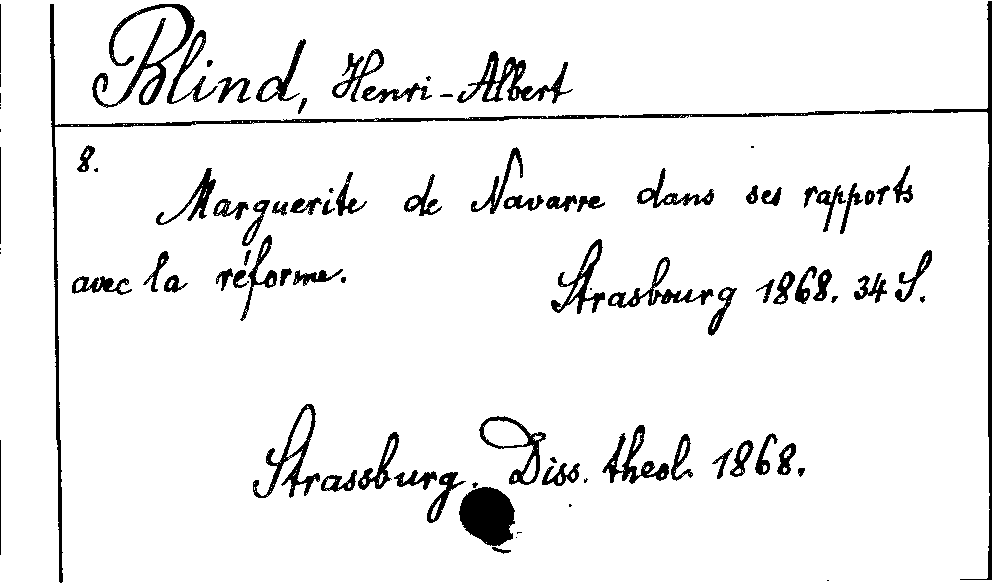 Blind, Henri-Albert
8.
Marguerite de Navarre dans ses rapports
avec la réforme. Strasbourg 1868. 34 S.
Strassburg. Diss. theol. 1868.